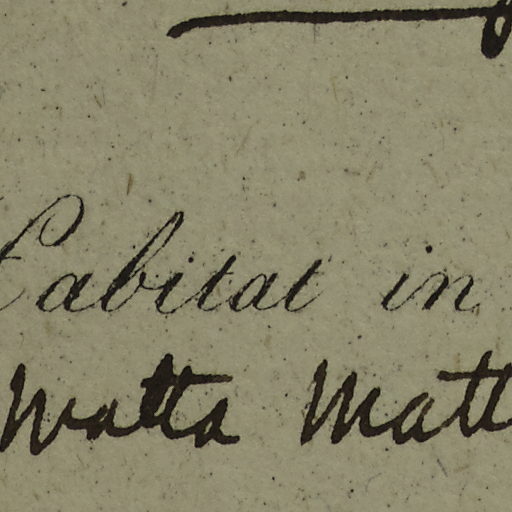 Habitat in
Watta Matt